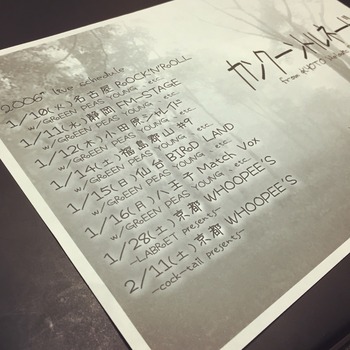 2006" live schedule
1/10(火)名古屋RoCK'N'RoLL
w/GREEN PEAS YOUNG etc.
1/11(水)静岡FM-STAGE
w/GREEN PEAS YOUNG etc.
1/12(木)小田原シャレ
w/GREEN PEAS YOUNG etc.
1/14(土)福島郡山#9
w/GREEN PEAS YOUNG etc.
1/15(日)仙台BIRoD LAND
w/GREEN PEAS YOUNG etc.
1/16(月)八王子Match Vox
w/GREEN PEAS YOUNG etc.
1/28(土)京都WHOOPEE'S
-LABRoET presents-
2/11(土)京都WHOOPEE'S
-cock-tail presents-
from KYOTO